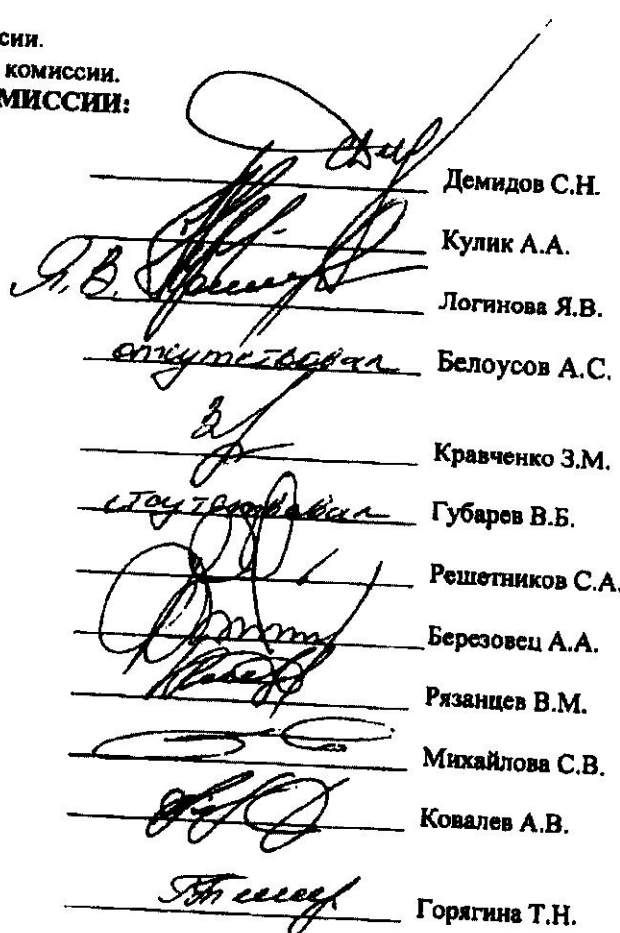 сии.
комиссии.
МИССИИ:
Демидов С.Н.
Кулик А.А.
Я.В. Логинова Я.В.
отсутствовал Белоусов А.С.
Кравченко З.М.
отсутствовал Губарев В.Б.
Решетников С.А.
Березовец А.А.
Рязанцев В.М.
Михайлова С.В.
Ковалев А.В.
Горягина Т.Н.